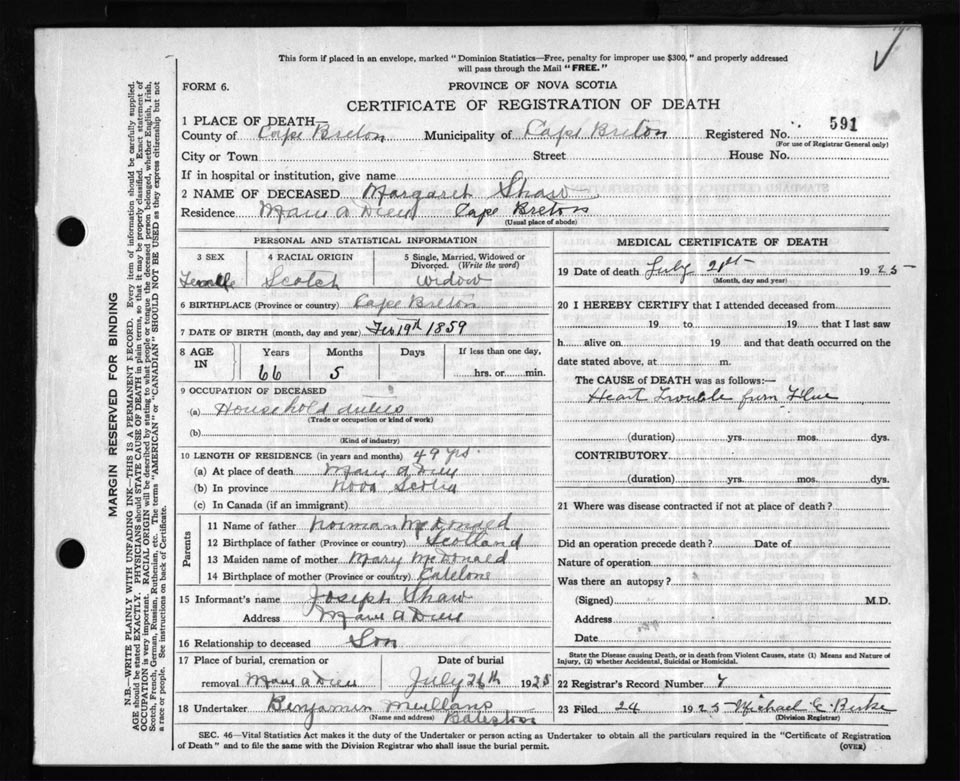 This form if placed in an envelope, marked "Dominion Statistics—Free, penalty for improper use $300," and properly addressed
will pass through the Mail "FREE."
FORM 6.
PROVINCE OF NOVA SCOTIA
CERTIFICATE OF REGISTRATION OF DEATH
1 PLACE OF DEATH—
County of Cape Breton Municipality of Cape Breton Registered No. 591
(For use of Registrar General only)
City or Town Street House No.
If in hospital or institution, give name
2 NAME OF DECEASED Margaret Shaw
Residence Main a Dieu Cape Breton
(Usual place of abode)
PERSONAL AND STATISTICAL INFORMATION
3 SEX 4 RACIAL ORIGIN 5 Single, Married, Widowed or
Divorced. (Write the word)
Female Scotch Widow
6 BIRTHPLACE (Province or country) Cape Breton
7 DATE OF BIRTH (month, day and year) Feb 19th 1859
8 AGE IN Years Months Days If less than one day,
66 5 hrs. or min.
9 OCCUPATION OF DECEASED
(a) Household duties
(Trade or occupation or kind of work)
(b)
(Kind of industry)
10 LENGTH OF RESIDENCE (in years and months) 49 yrs.
(a) At place of death Main a Dieu
(b) In province Nova Scotia
(c) In Canada (if an immigrant)
Parents
11 Name of father Norman McDonald
12 Birthplace of father (Province or country) Scotland
13 Maiden name of mother Mary McDonald
14 Birthplace of mother (Province or country) Catelone
15 Informant's name Joseph Shaw
Address Main a Dieu
16 Relationship to deceased Son
17 Place of burial, cremation or Date of burial
removal Main a Dieu July 26th 1925
18 Undertaker Benjamin
(Name and address)
MEDICAL CERTIFICATE OF DEATH
19 Date of death July 21st 1925
(Month, day and year)
20 I HEREBY CERTIFY that I attended deceased from
19 to 19 that I last saw
h alive on 19 and that death occurred on the
date stated above, at m.
The CAUSE OF DEATH was as follows:—
Heart Trouble from Flue
(duration) yrs. mos. dys.
CONTRIBUTORY
(duration) yrs. mos. dys.
21 Where was disease contracted if not at place of death?
Did an operation precede death? Date of
Nature of operation
Was there an autopsy?
(Signed) M.D.
Address
Date
State the Disease causing Death, or in death from Violent Causes, state (1) Means and Nature of
Injury, (2) whether Accidental, Suicidal or Homicidal.
22 Registrar's Record Number 7
23 Filed 24 1925 Michael E. Burke
(Division Registrar)
SEC. 46—Vital Statistics Act makes it the duty of the Undertaker or person acting as Undertaker to obtain all the particulars required in the "Certificate of Registration
of Death" and to file the same with the Division Registrar who shall issue the burial permit.
(OVER)
MARGIN RESERVED FOR BINDING
N.B.—WRITE PLAINLY WITH UNFADING INK—THIS IS A PERMANENT RECORD. Every item of information should be carefully supplied.
AGE should be stated EXACTLY. PHYSICIANS should STATE CAUSE OF DEATH in plain terms, so that it may be properly classified. Exact statement of
OCCUPATION is very important. RACIAL ORIGIN will be described by stating to what people or tongue the deceased person belonged, whether English, Irish,
Scotch, French, German, Russian, Ruthenian, etc. The terms "AMERICAN" or "CANADIAN" SHOULD NOT BE USED as they express citizenship but not
a race or people. See instructions on back of Certificate.